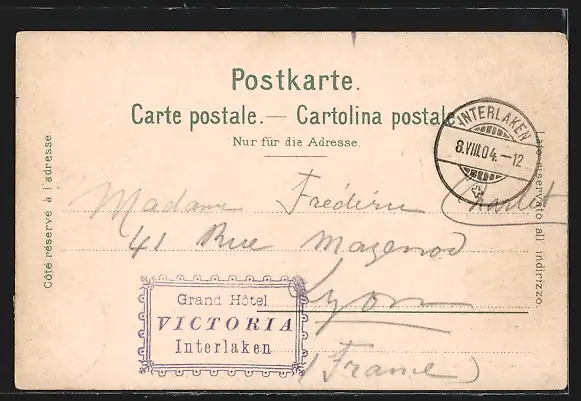 Postkarte.
Carte postale.— Cartolina postale
Nur für die Adresse.
INTERLAKEN
8.VIII.04.-12
Côté réservé à l'adresse.
Lato riservato all' indirizzo.
Madame Frédéric
41 Rue Mazenod
Lyon
(France)
Grand Hôtel
VICTORIA
Interlaken